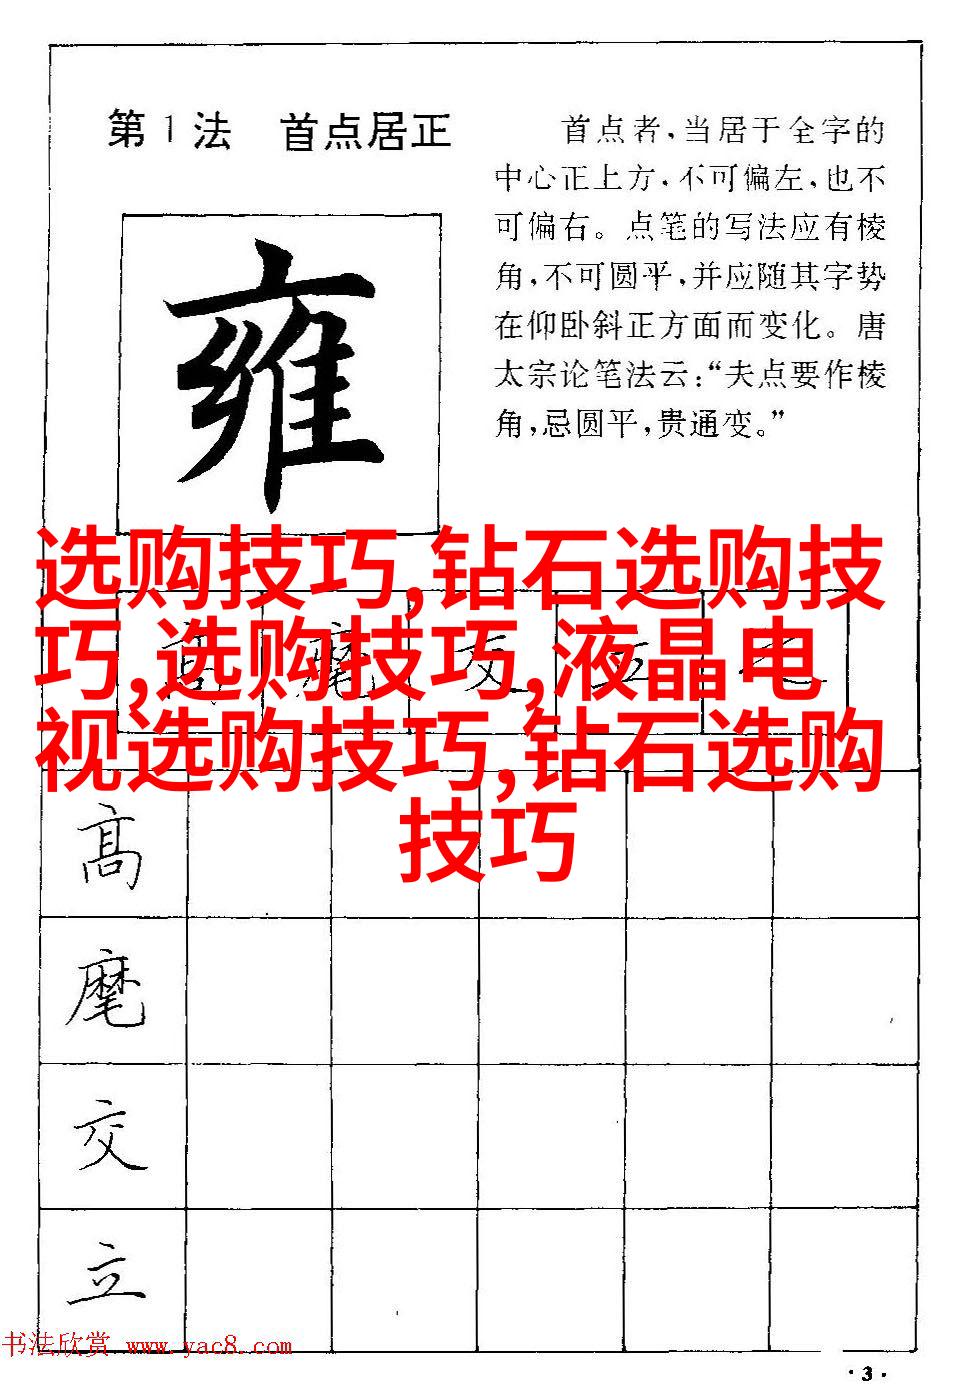 第1法 首点居正
首点者,当居于全字的
中心正上方,不可偏左,也不
可偏右。点笔的写法应有棱
角,不可圆平,并应随其字势
在仰卧斜正方面而变化。唐
太宗论笔法云:“夫点要作棱
角,忌圆平,贵通变。”
雍
选购技巧,钻石选购技
巧,选购技巧,液晶电
视选购技巧,钻石选购
技巧
高 麾 交 立
高
麾
交
立
书法欣赏 www.yac8.com
·3·